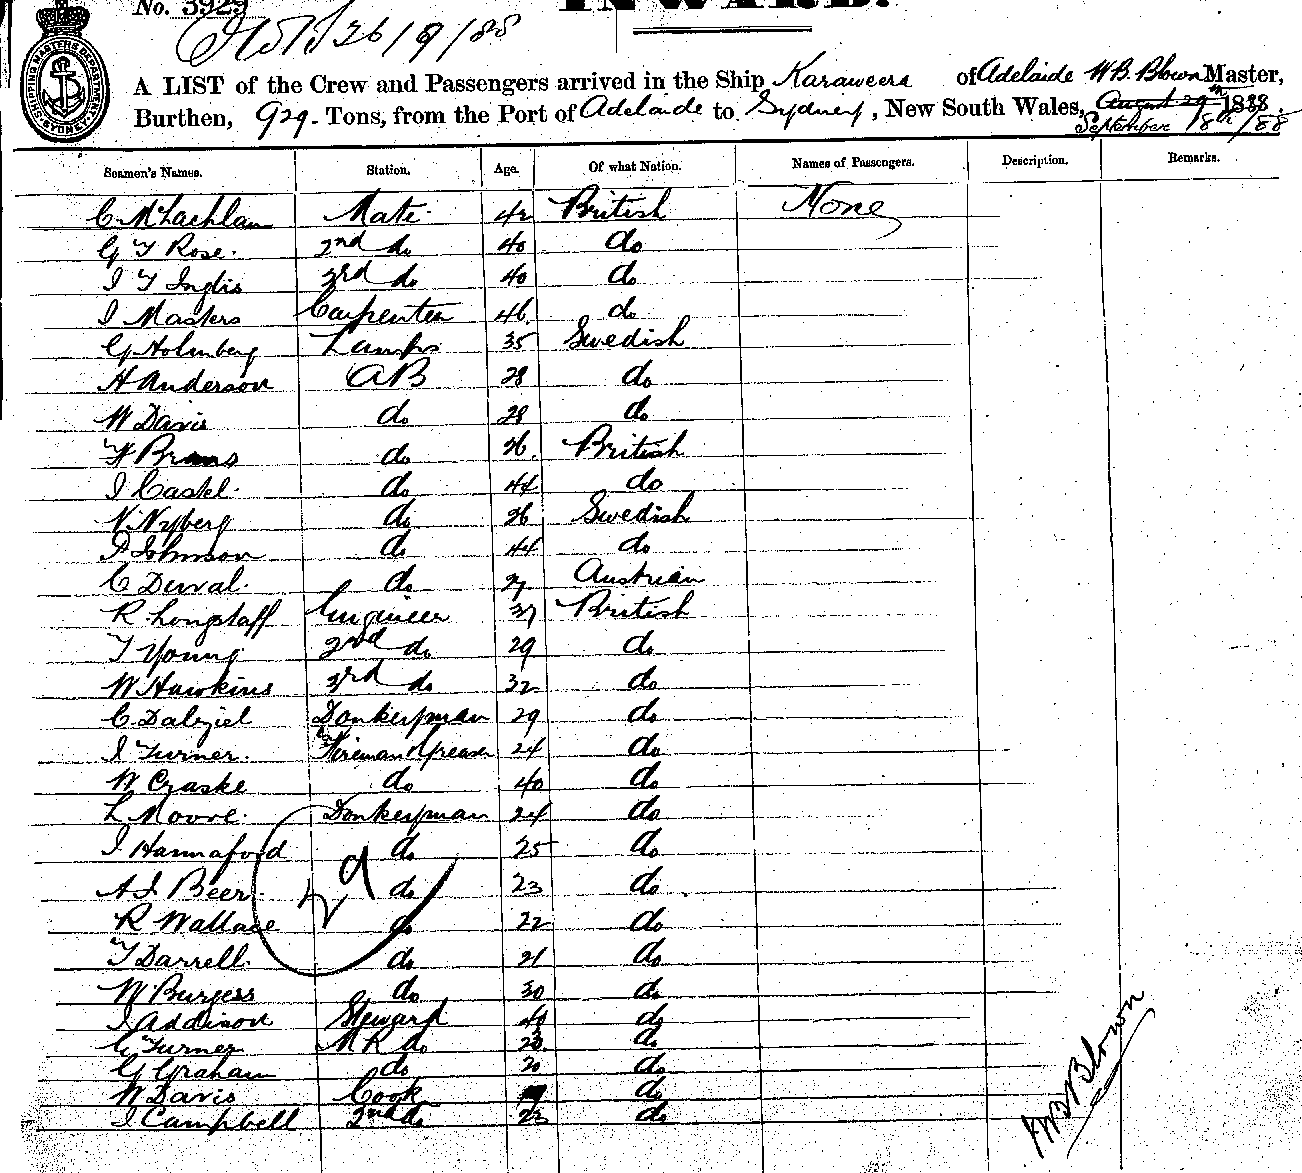 No. 3929
INWARD.
26/9/88
SHIPPING MASTERS DEPARTMENT SYDNEY
A LIST of the Crew and Passengers arrived in the Ship Karaweera of Adelaide W.B. Blown Master,
Burthen, 929 Tons, from the Port of Adelaide to Sydney, New South Wales, August 29th 1888.
September 18th/88
Seamen's Names. Station. Age. Of what Nation. Names of Passengers. Description. Remarks.
C McLachlan Mate 42 British None
G F Rose. 2nd do 40 do
J F Inglis 3rd do 40 do
J Masters Carpenter 46 do
G Holmberg Lamps 35 Swedish
H Anderson AB 28 do
W Davis do 28 do
F do 26. British
J Castel. do 44 do
N. Nyberg do 26 Swedish
P Johnson do 44 do
C Duval. do 27 Austrian
R Longstaff Engineer 37 British
T Young 2nd do 29 do
W Hawkins 3rd do 32 do
C Dalziel Donkeyman 29 do
J Turner. Fireman & Greaser 24 do
W Craske do 40 do
L Moore. Donkeyman 24 do
J Hannaford do 25 do
A J Beer. do 23 do
R Wallace do 22 do
T Darrell. do 21 do
W Burgess do 30 do
J Addison Steward do
G Turner M R do do
G Graham do 20 do
W Davis Cook do
J Campbell 2nd do 22 do
29
W B Blown